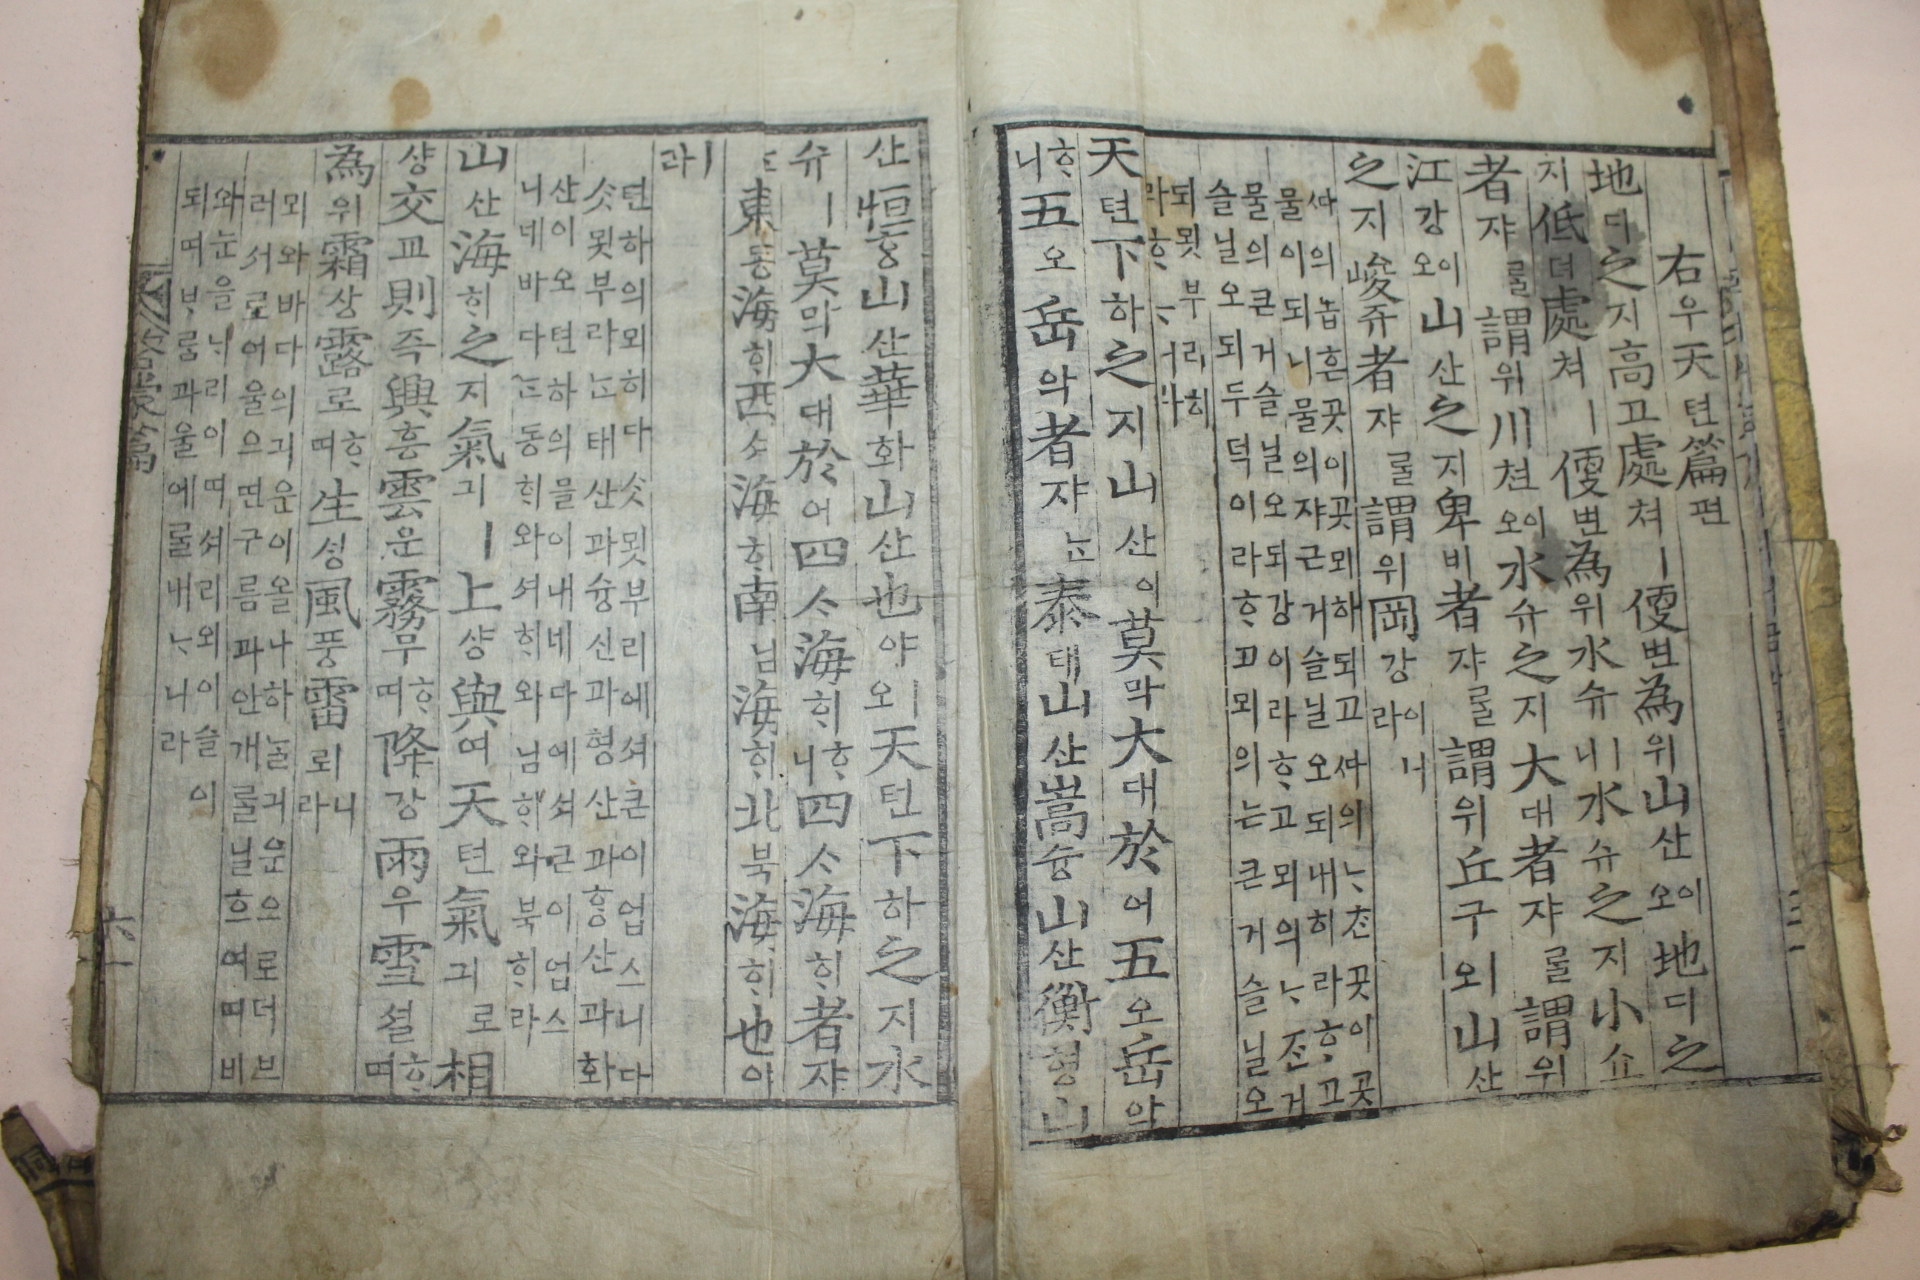 右우天텬篇편
地디之지高고處쳐ㅣ便변為위山산오이地디之
지低뎌處쳐ㅣ便변為위水슈ㅣ니水슈之지小쇼
者쟈를謂위川쳔오이水슈之지大대者쟈를謂위
江강오이山산之지卑비者쟈를謂위丘구외山산
之지峻쥰者쟈를謂위岡강이니라
ᄯᅡ의놉흔곳이곳뫼해되고ᄯᅡ의ᄂᆞᄌᆞᆫ곳이곳
물이되니물의쟈근거슬닐오되내히라ᄒᆞ고
물의큰거슬닐오되강이라ᄒᆞ고뫼의ᄂᆞᄌᆞᆫ거
슬닐오되두덕이라ᄒᆞ고뫼의는큰거슬닐오
되묏부리히
라ᄒᆞᄂᆞ니라
天텬下하之지山산이莫막大대於어五오岳악
ᄒᆞ니五오岳악者쟈ᄂᆞᆫ泰태山산嵩슝山산衡형山
산恒ᄒᆞᆼ山산華화山산也야오ㅣ天텬下하之지水
슈ㅣ莫막大대於어四ᄉᆞ海ᄒᆡᄒᆞ니四ᄉᆞ海ᄒᆡ者쟈
ᄂᆞᆫ東동海ᄒᆡ西셔海ᄒᆡ南남海ᄒᆡ北북海ᄒᆡ也야
ㅣ라
텬하의뫼히다ᄉᆞᆺ묏부리에셔큰이업스니다
ᄉᆞᆺ묏부라ᄂᆞᆫ태산과슝신과형산과ᄒᆞᆼ산과화
산이오텬하의믈이내네다에셔근이업스
니네바다ᄂᆞᆫ동ᄒᆡ와셔ᄒᆡ와님ᄒᆡ와북ᄒᆡ라
山산海ᄒᆡ之지氣긔ㅣ上샹與여天텬氣긔로相
샹交교則즉興흥雲운霧무ᄒᆞ며降강雨우雪셜ᄒᆞ며
為위霜상露로ᄒᆞ며生싱風풍雷뢰니라
뫼와바다의긔운이올나하ᄂᆞᆯ긔운으로더브
러서로어울으면구름과안개를닐흐여며비
와눈을ᄂᆞ리이며셔리외이슬이
되며ᄇᆞ룸과울에룰내ᄂᆞ니라
啓蒙篇
六